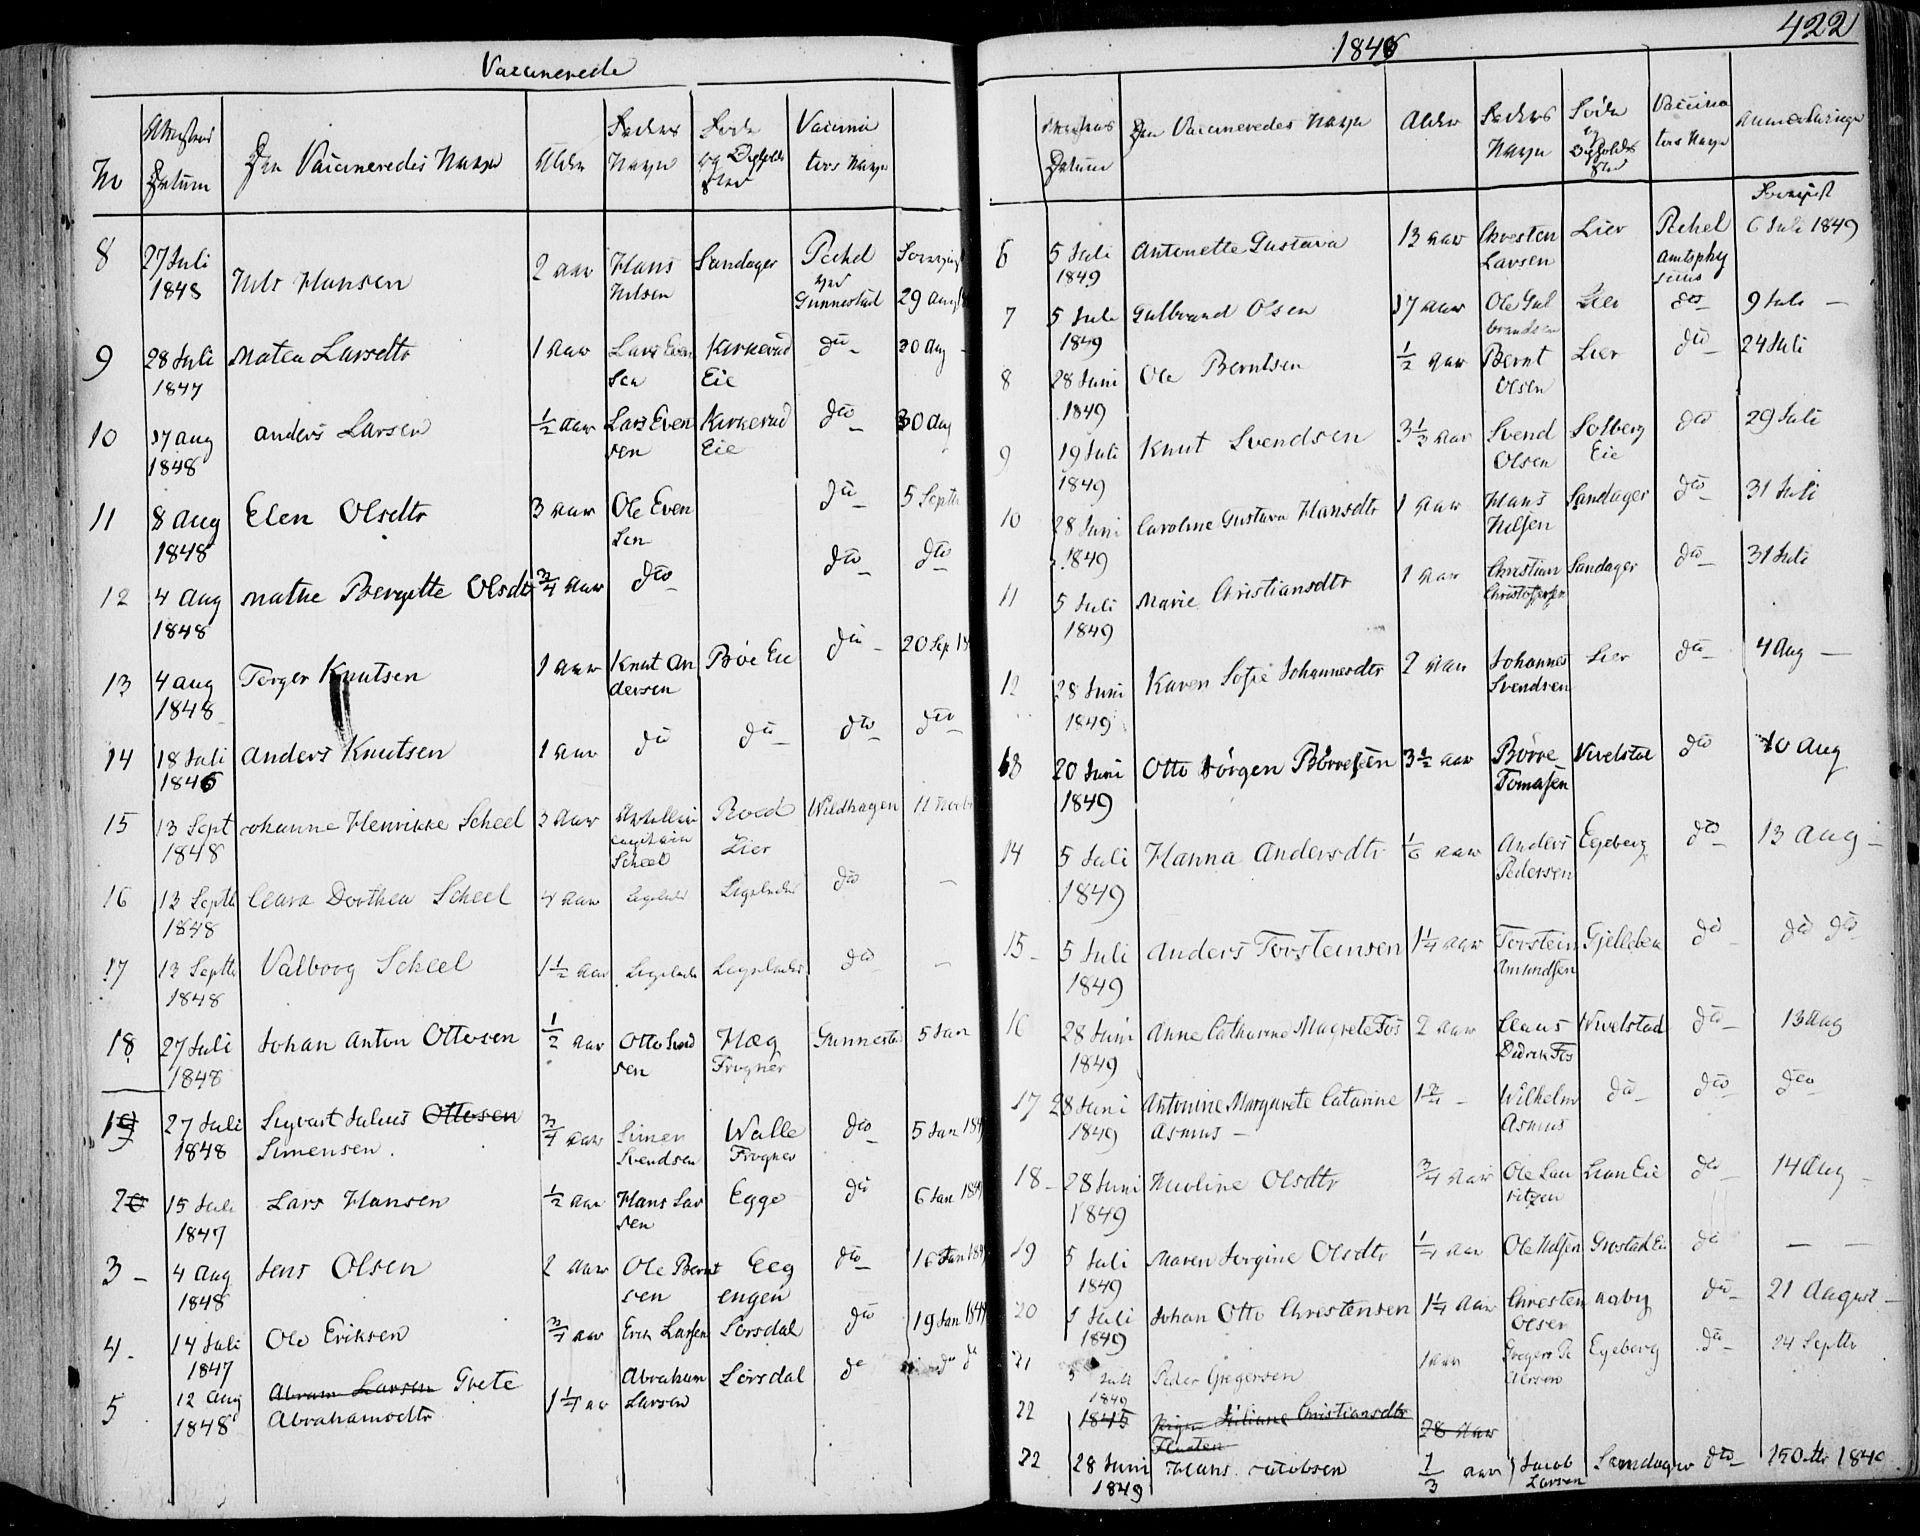 Vaccinerede
No
Attestens Datum
Den Vaccineredes Navn
Alder
Faders Navn
Føde og Opholds Sted
Vaccina tors Navn
8 27 Juli 1848 Nils Hansen 2 aar Hans Nilsen Sandager Pechel ved Gunnestad 29 aug
9 28 Juli 1847 Matea Larsdtr 1 aar Lars Even sen Kirkerud Eie dto 30 Aug
10 17 aug 1848 anders Larsen ½ aar Lars Even sen Kirkerud Eie dto 30 aug
11 8 aug 1848 Elen Olsdtr 3 aar Ole Even sen dto 5 Septb
12 4 aug 1848 Mathe Bergitte Olsdtr ¾ aar dto dto dto
13 4 aug 1848 Torger Knutsen 1 aar Knut An dersen Böe Eie dto 20 Sep 18
14 18 Juli 1846 anders Knutsen 1 aar do do dto dto
15 13 Sept 1848 Johanne Henrikke Scheel 3 aar capitain Scheel Lier Wildhagen 11
16 13 Septb 1848 Clara Dorthea Scheel 4 aar Ligeledes Ligeledes dto —
17 13 Septb 1848 Valborg Scheel 1½ aar Ligeledes Ligeledes dto —
18 27 Juli 1848 Johan Anton Ottosen ½ aar Otto sen Hæg Frogner Gunnestad 5 Jan
19 27 Juli 1848 Sigvart Julius Ottosen Simensen ¾ aar Simen Svendsen Walle Frogner dto 5 Jan 184
20 15 Juli 1847 Lars Hansen ½ aar Hans Lar sen Egge do 6 Jan 184
3 - 4 Aug 1848 Jens Olsen 2 aar Ole Bernt sen Eeg engen dto 16 Jan 184
4 - 14 Juli 1847 Ole Eriksen ¾ aar Erik Larsen Sørsdal dto 19 Jan 1849
5 12 Aug 1848 Abram Larsen Grete Abrahamsdtr 1¼ aar Abraham Larsen Sørsdal do do do
1848
422
Attestens Datum
Den Vaccineredes Navn
Alder
Faders Navn
Føde og Opholds Sted
Vaccina tors Navn
Anmærkninger
6 5 Juli 1849 Antonette Gustava 13 aar Christen Larsen Lier Pechel amtsphy sicus 6 Juli 1849
7 5 Juli 1849 Gulbrand Olsen 17 aar Ole Gul brandsen Lier dto 9 Juli —
8 28 Juni 1849 Ole Berntsen ½ aar Bernt Olsen Lier dto 24 Juli
9 19 Juli 1849 Knut Svendsen 3⅓ aar Svend Olsen Solberg Eie dto 29 Juli
10 28 Juni 1849 Caroline Gustava Hansdtr 1 aar Hans Nilsen Sandager dto 31 Juli
11 5 Juli 1849 Marie Christiansdtr 1 aar Christian Christoffersen Sandager dto 31 Juli
12 28 Juni 1849 Karen Sofie Johannesdtr 2 aar Johannes Svendsen Lier dto 4 Aug —
13 20 Juni 1849 Otto Jörgen Börresen 3½ aar Börre Tomasen Vivelstad dto 10 Aug
14 5 Juli 1849 Hanna Andersdtr ⅙ aar Anders Pedersen Egeberg dto 13 Aug —
15 - 5 Juli 1849 Anders Torsteinsen 1¼ aar Torstein Amundsen Gjellebek do do dto
16 28 Juni 1849 Anne Catharine Magrete Fos 2 aar Claus Didrik Fos Vivelstad dto 13 Aug
17 28 Juni 1849 Antonine Margarete Catarine Asmus — 1¾ - Wilhelm Asmus do dto dto
18 - 28 Juni 1849 Olsdtr ¾ aar Ole Lau ritzen Eie do 14 Aug —
19 5 Juli 1849 Maren Jorgine Olsdtr ¼ aar Ole do — —
20 5 Juli 1849 Johan Otto Christensen 1¼ aar Christen Olsen Aaby do 21 August —
21 5 Juli 1849 Peder Gregersen 1 aar Gregers Pe dersen Egeberg do 24 Septbr
22 1845 Juliane Christiansdtr 28 aar
22 28 Juni 1849 Hans Jacobsen ⅓ aar Jacob Larsen Sandager dto